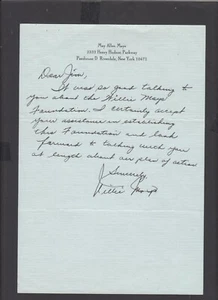 May Allen Mays
3333 Henry Hudson Parkway
Penthouse D Riverdale, New York 10471
Dear Jim,
It was so good talking to
you about the Willie Mays
Foundation. I certainly accept
your assistance in establishing
this Foundation and look
forward to talking with you
at length about our plan of action
Sincerely,
Willie Mays